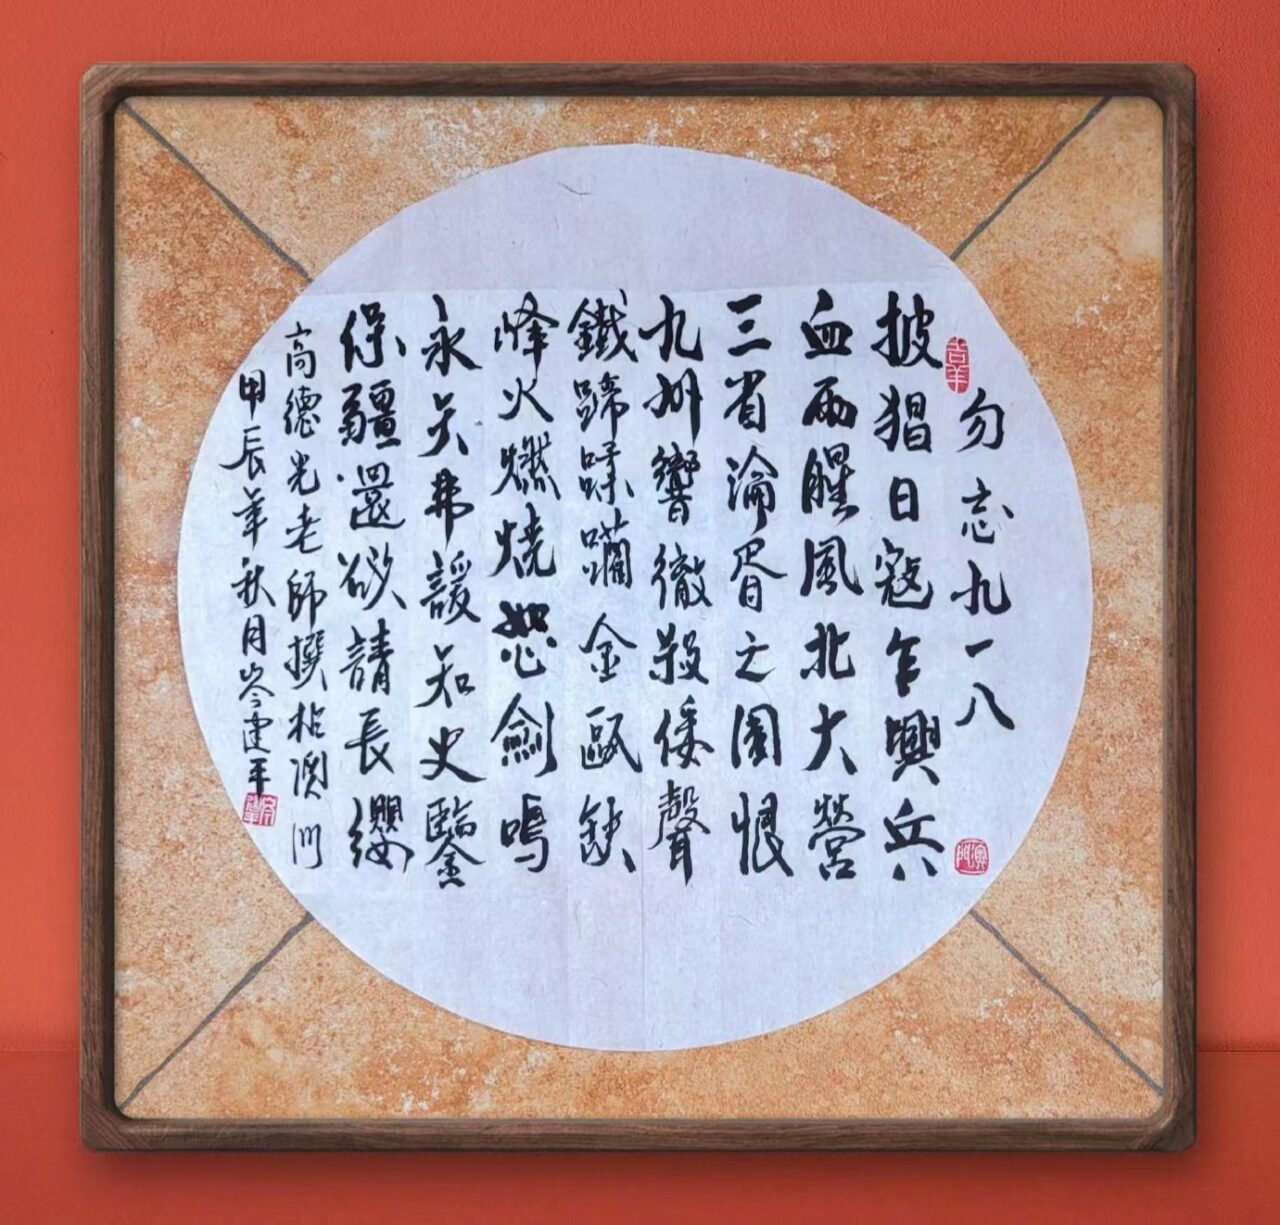 勿忘九一八
披猖日寇乍興兵
血雨腥風北大營
三省淪胥亡國恨
九州響徹殺倭聲
鐵蹄蹂躪金甌缺
烽火燃燒怒劍鳴
永矢弗諼知史鑒
保疆還欲請長纓
高德光老師撰於澳門
甲辰年秋月岑建平
吉羊
澳門